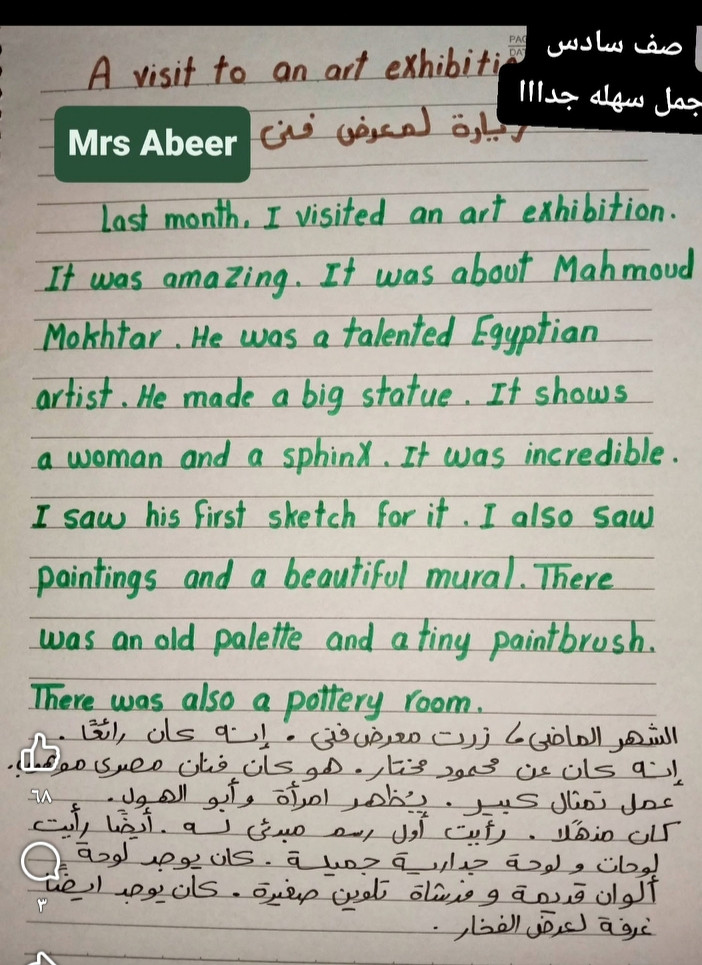 صف سادس
جمل سهله جدااا
A visit to an art exhibitio
زيارة لمعرض فني
Mrs Abeer
Last month, I visited an art exhibition.
It was amazing. It was about Mahmoud
Mokhtar. He was a talented Egyptian
artist. He made a big statue. It shows
a woman and a sphinx. It was incredible.
I saw his first sketch for it. I also saw
paintings and a beautiful mural. There
was an old palette and a tiny paintbrush.
There was also a pottery room.
الشهر الماضي، زرت معرض فني. إنه كان رائعًا.
إنه كان عن محمود مختار. هو كان فنان مصرى موهوب.
عمل تمثال كبير. يُظهر امرأة وأبو الهول.
كان مذهلًا. رأيت أول رسم مبدئي له. أيضًا رأيت
لوحات و لوحة جدارية جميلة. كان يوجد لوحة
ألوان قديمة و فرشاة تلوين صغيرة. كان يوجد ايضًا
غرفة لعرض الفخار.
٦٨
٣